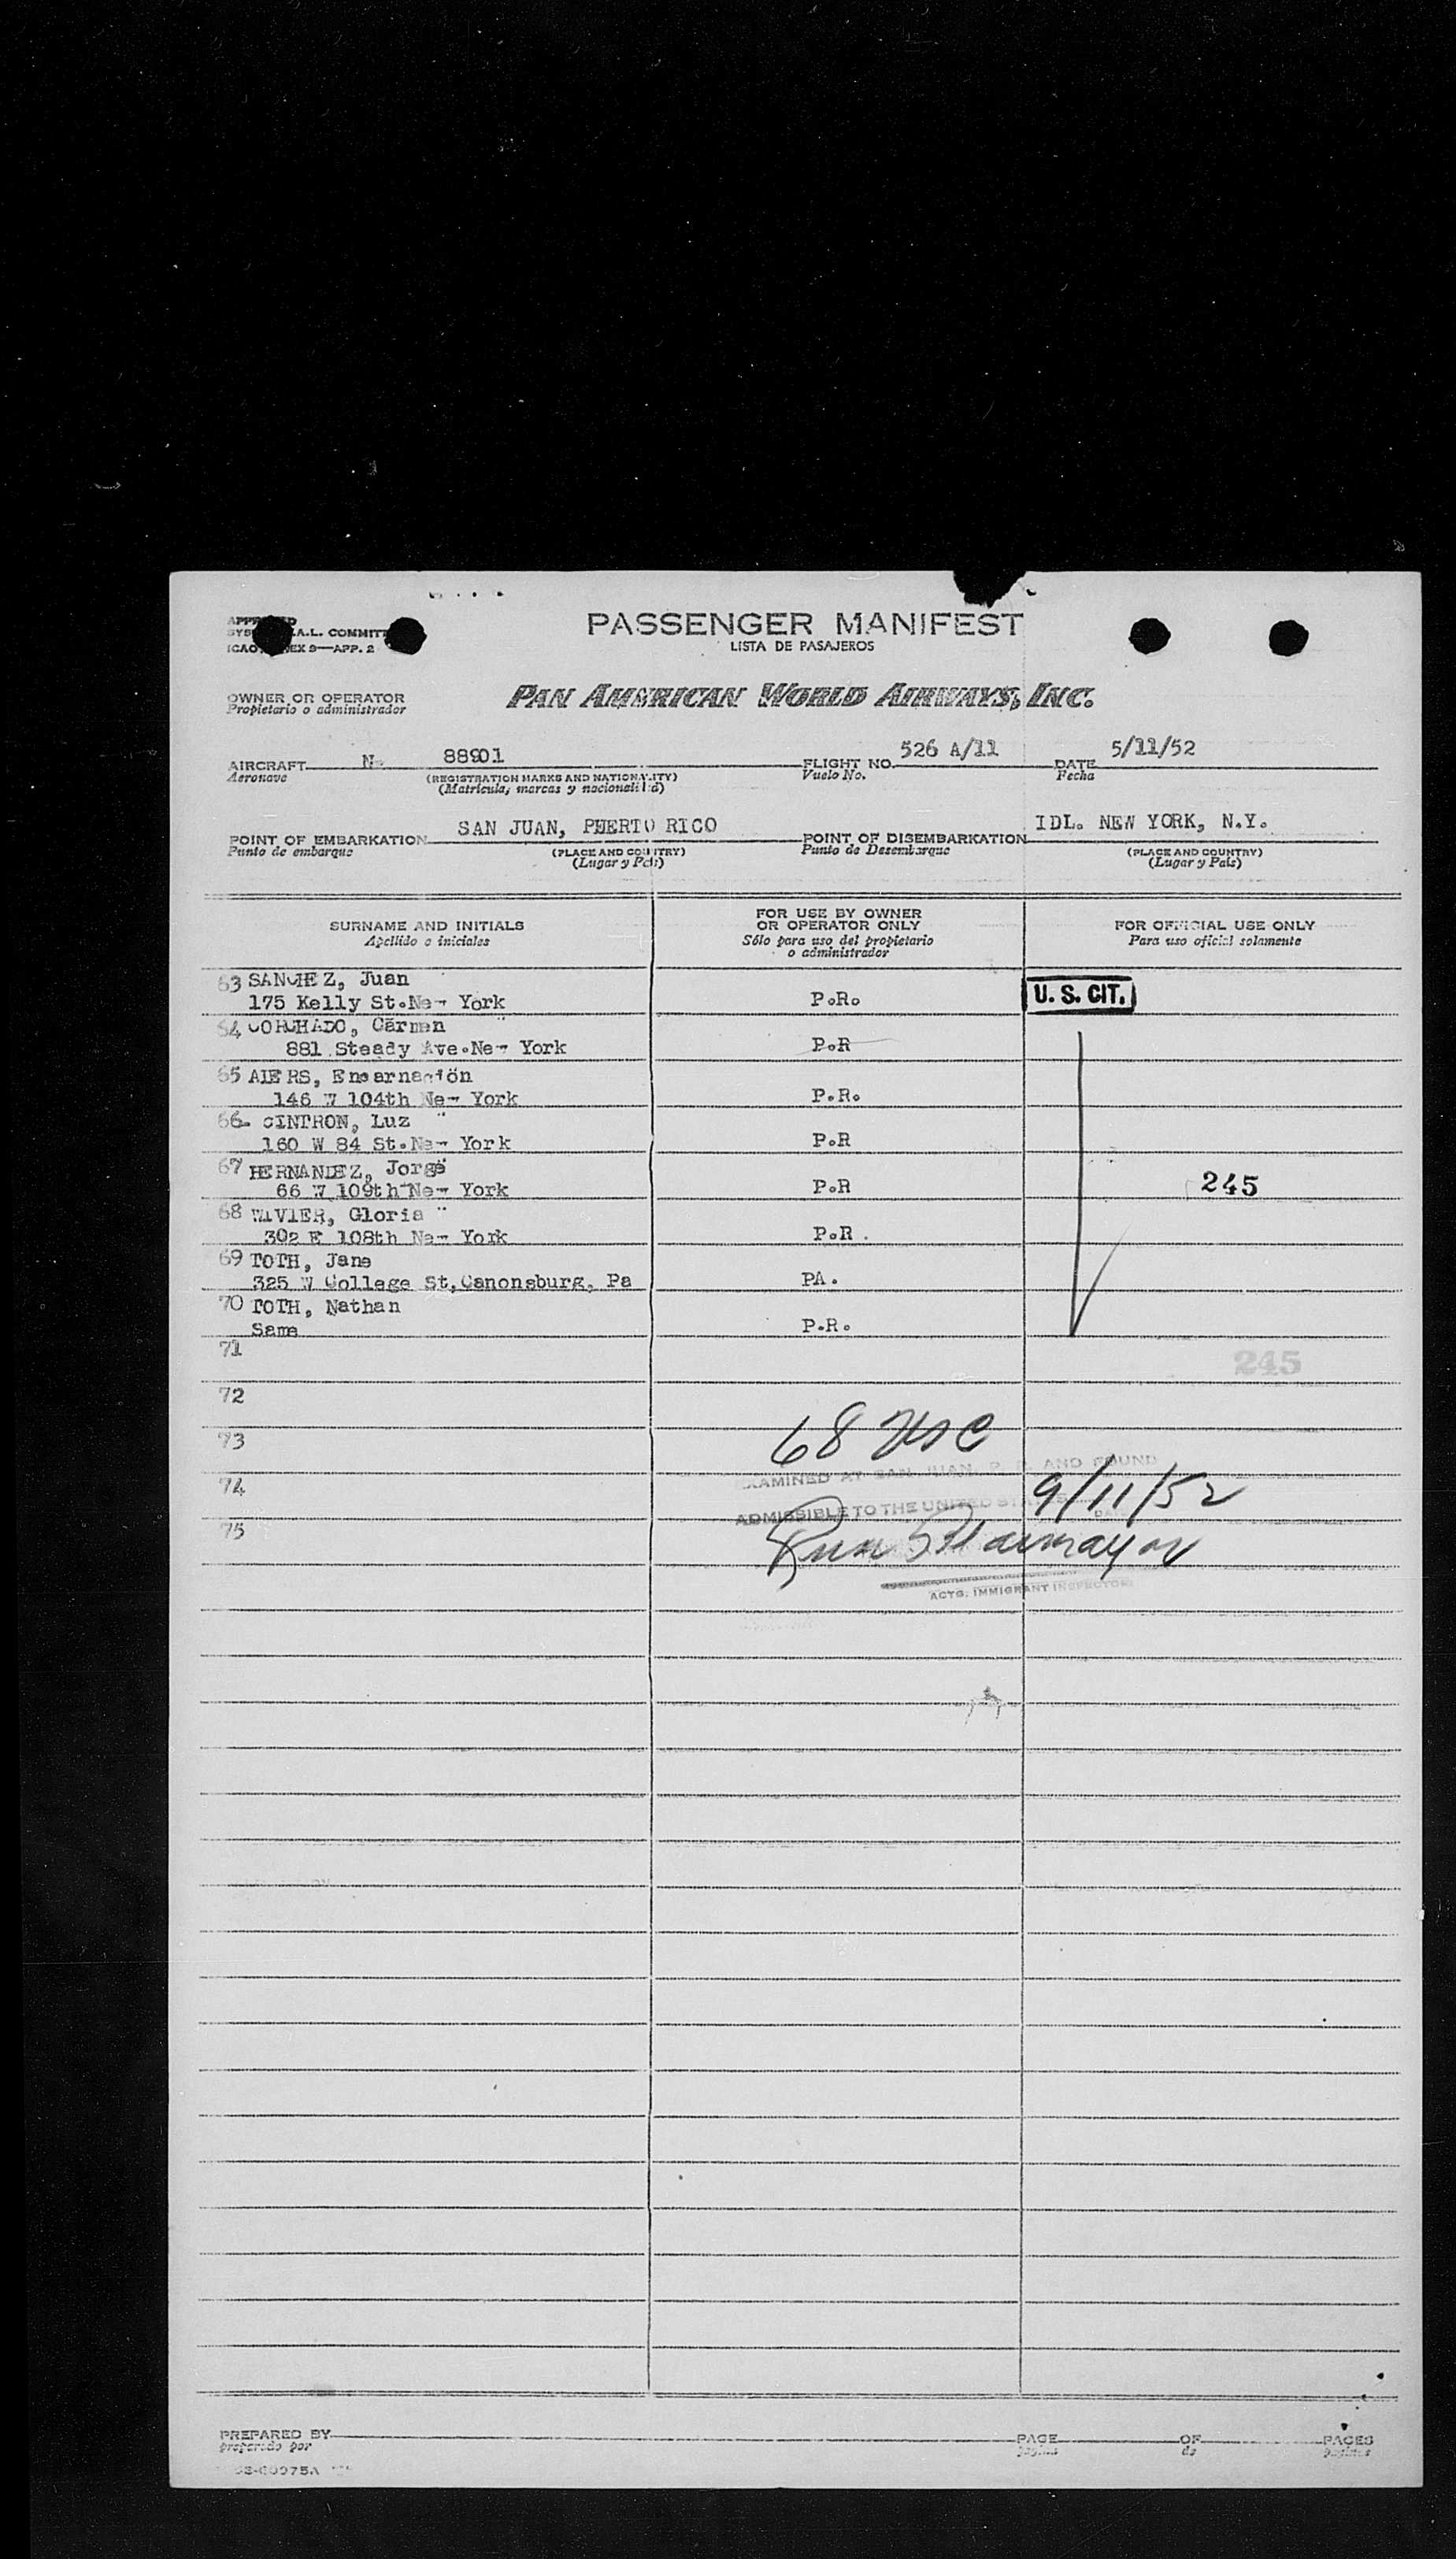 PASSENGER MANIFEST
LISTA DE PASAJEROS
A.L. COMMITT
EX 9—APP. 2
OWNER OR OPERATOR
Propietario o administrador
PAN AMERICAN WORLD AIRWAYS, INC.
AIRCRAFT N- 88901 FLIGHT NO. 526 A/11 DATE 5/11/52
Aeronave (REGISTRATION MARKS AND NATIONALITY) Vuelo No. Fecha
(Matrícula, marcas y nacionalidad)
POINT OF EMBARKATION SAN JUAN, PUERTO RICO POINT OF DISEMBARKATION IDL. NEW YORK, N.Y.
Punto de embarque (PLACE AND COUNTRY) Punto de Desembarque (PLACE AND COUNTRY)
(Lugar y País) (Lugar y País)
SURNAME AND INITIALS FOR USE BY OWNER OR OPERATOR ONLY FOR OFFICIAL USE ONLY
Apellido e iniciales Sólo para uso del propietario o administrador Para uso oficial solamente
63 SANCHEZ, Juan
175 Kelly St.New York P.R. U. S. CIT.
64 CORCHADO, Carmen "
881 Steady Ave.New York P.R
65 AIERS, Encarnación
146 W 104th New York P.R.
66 CINTRON, Luz "
160 W 84 St.New York P.R
67 HERNANDEZ, Jorge
66 W 109th New York P.R 245
68 Gloria "
302 E 108th New York P.R.
69 TOTH, Jane
325 W College St,Canonsburg, Pa PA.
70 TOTH, Nathan
Same P.R.
71
245
72
73 68 USC
EXAMINED AT SAN JUAN, P. R. AND FOUND
74 9/11/52
ADMISSIBLE TO THE UNITED STATES
75
ACTG. IMMIGRANT INSPECTOR
PREPARED BY PAGE OF PAGES
preparado por página de páginas